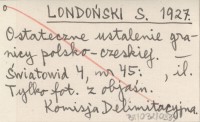 LONDOŃSKI S. 1927.
Ostateczne ustalenie gra-
nicy polsko-czeskiej.
Światowid 4, nr 45: , il.
Tylko fot. z objaśn.
Komisja Delimitacyjna